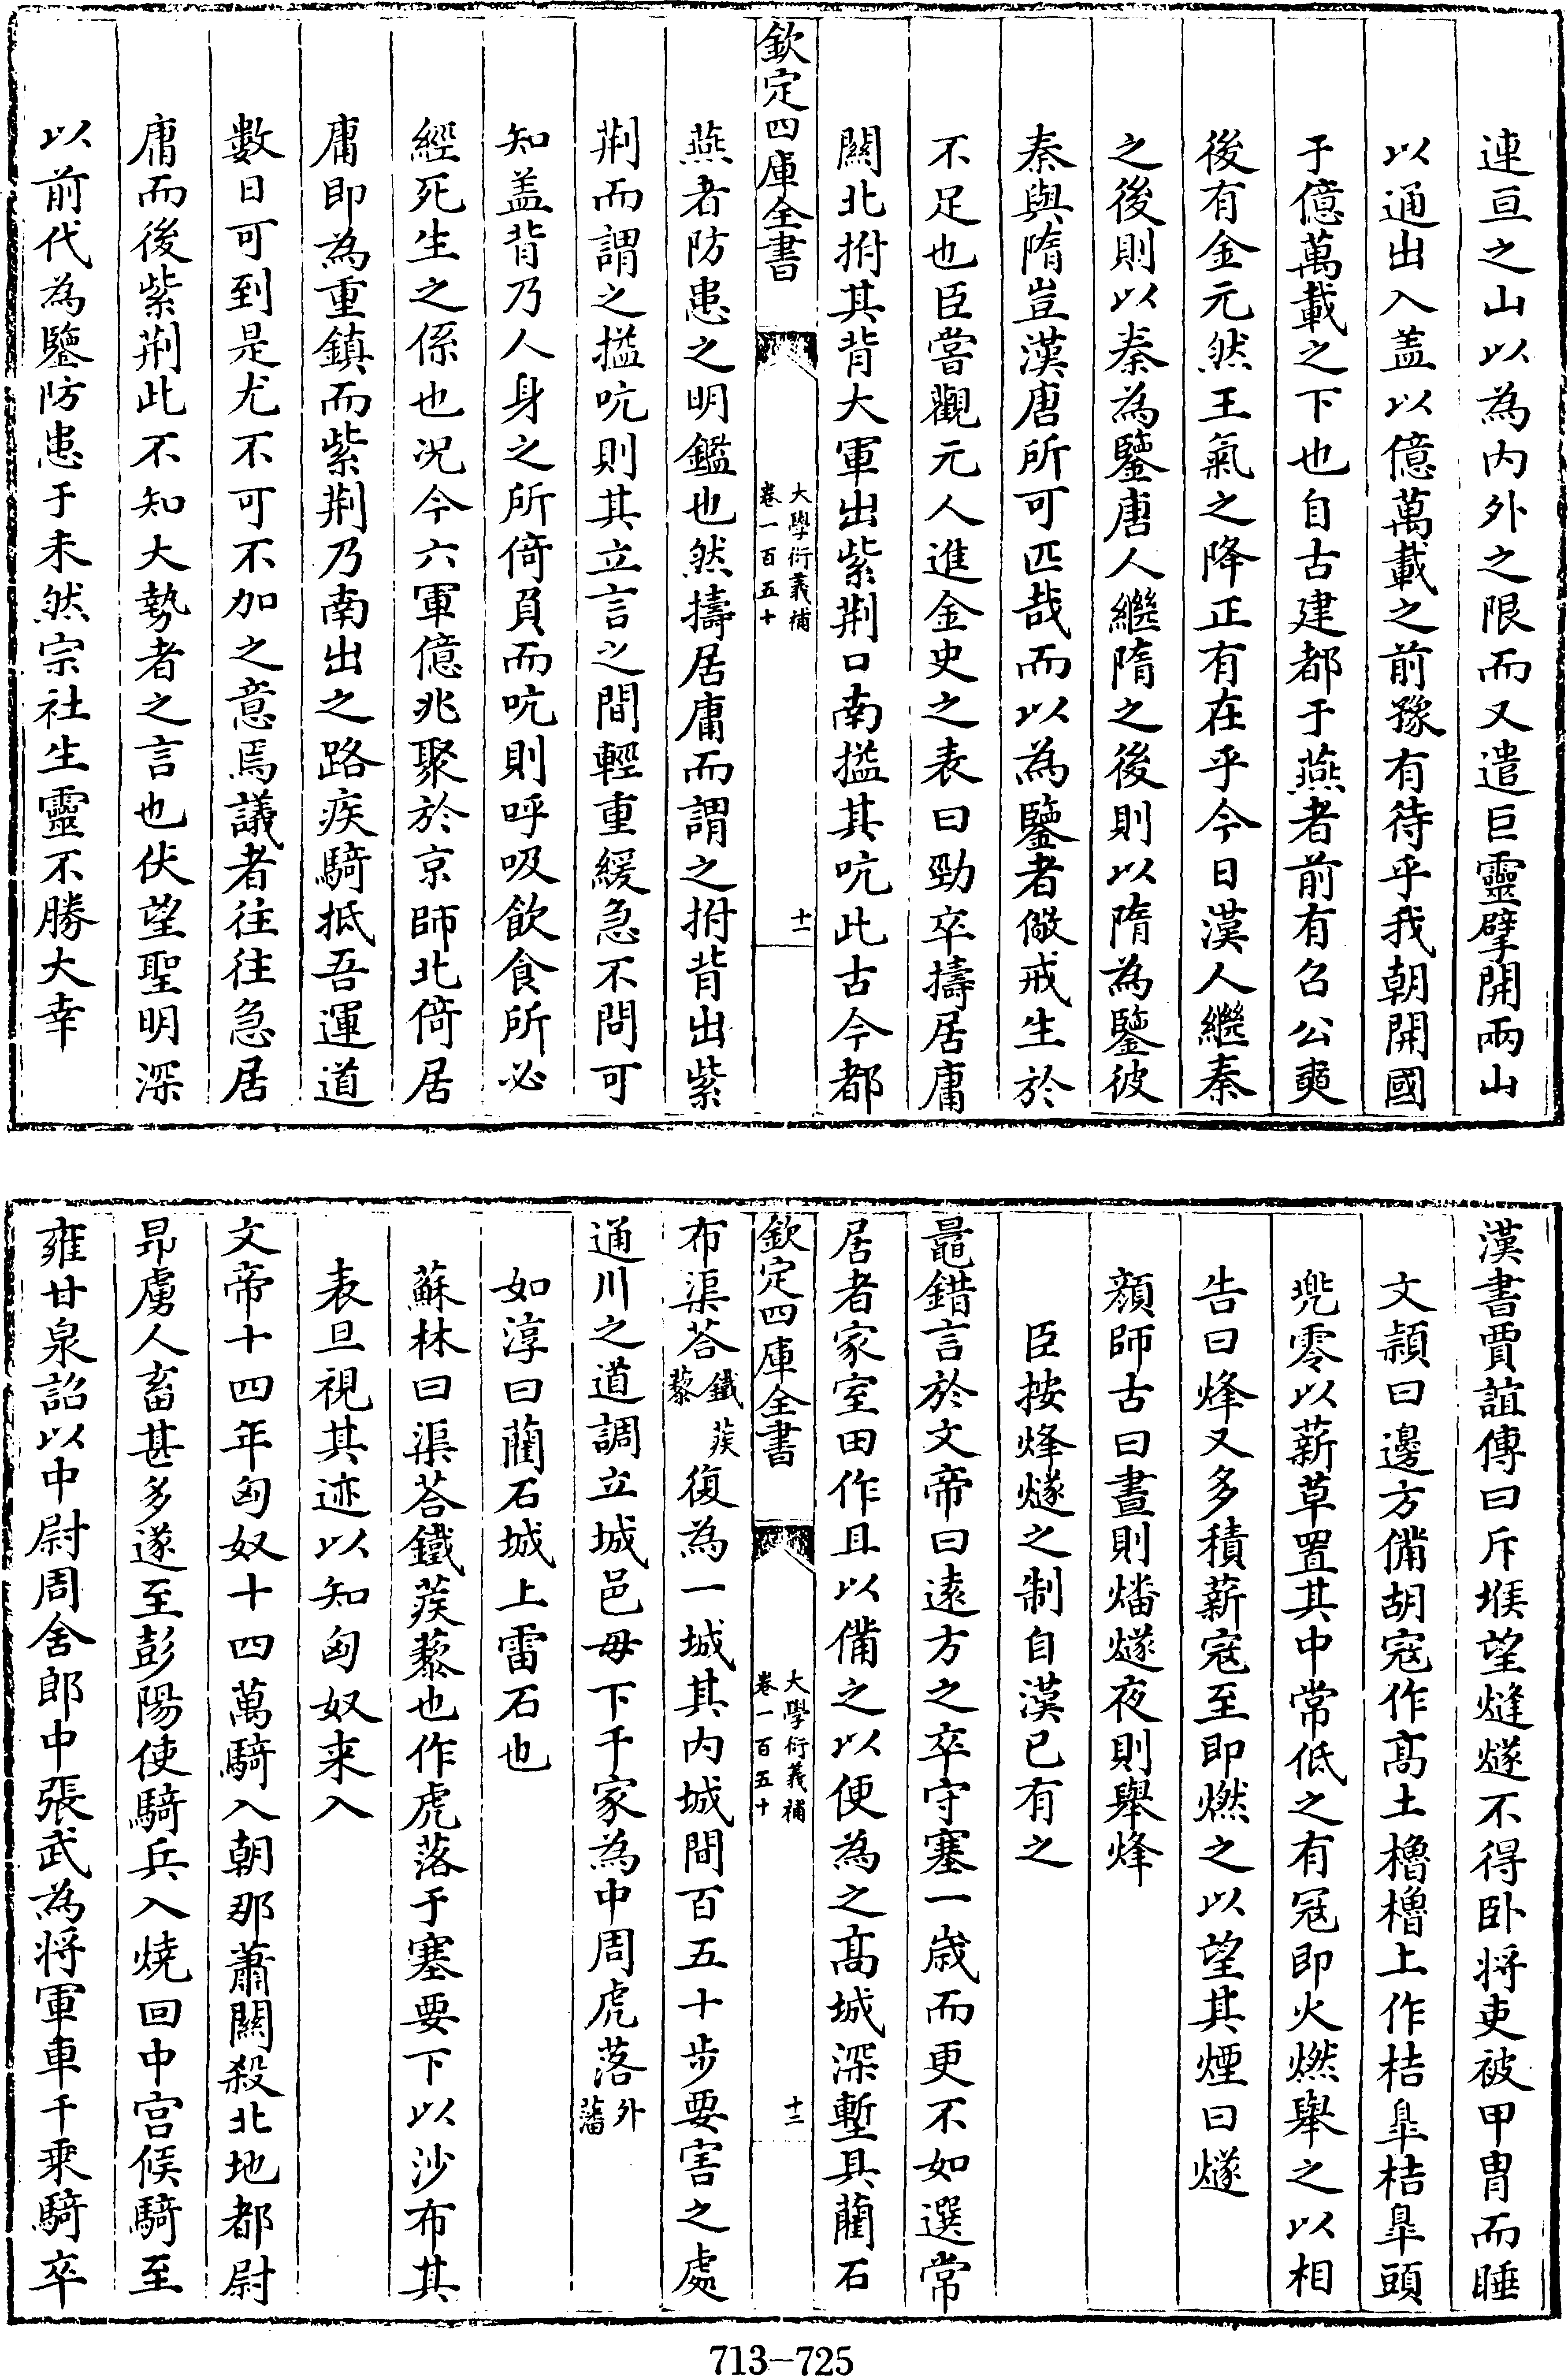 連亘之山以為内外之限而又遣巨靈擘開兩山
以通出入盖以億萬載之前豫有待乎我朝開國
于億萬載之下也自古建都于燕者前有召公奭
後有金元然王氣之降正有在乎今日漢人繼秦
之後則以秦為鑒唐人繼隋之後則以隋為鑒彼
秦與隋豈漢唐所可匹哉而以為鑒者儆戒生於
不足也臣嘗觀元人進金史之表曰勁卒擣居庸
關北拊其背大軍出紫荆口南搤其吭此古今都
欽定四庫全書
大學衍義補
卷一百五十
十一
燕者防患之明鑑也然擣居庸而謂之拊背出紫
荆而謂之搤吭則其立言之間輕重緩急不問可
知盖背乃人身之所倚負而吭則呼吸飲食所必
經死生之係也况今六軍億兆聚於京師北倚居
庸即為重鎮而紫荆乃南出之路疾騎抵吾運道
數日可到是尤不可不加之意焉議者往往急居
庸而後紫荆此不知大勢者之言也伏望聖明深
以前代為鑒防患于未然宗社生靈不勝大幸
漢書賈誼傳曰斥堠望熢燧不得卧将吏被甲冑而睡
文頴曰邊方備胡寇作髙土櫓櫓上作桔臯桔臯頭
兠零以薪草置其中常低之有冦即火燃舉之以相
告曰烽又多積薪寇至即燃之以望其煙曰燧
顔師古曰晝則燔燧夜則舉烽
臣按烽燧之制自漢已有之
鼂錯言於文帝曰逺方之卒守塞一嵗而更不如選常
居者家室田作且以備之以便為之髙城深塹具藺石
欽定四庫全書
大學衍義補
卷一百五十
十二
布渠荅鐵蒺藜復為一城其内城間百五十步要害之處
通川之道調立城邑毋下千家為中周虎落外藩
如淳曰藺石城上雷石也
蘇林曰渠荅鐵蒺藜也作虎落于塞要下以沙布其
表旦視其迹以知匈奴来入
文帝十四年匈奴十四萬騎入朝那蕭關殺北地都尉
昻虜人畜甚多遂至彭陽使騎兵入燒回中宫候騎至
雍甘泉詔以中尉周舍郎中張武為将軍車千乗騎卒
713-725